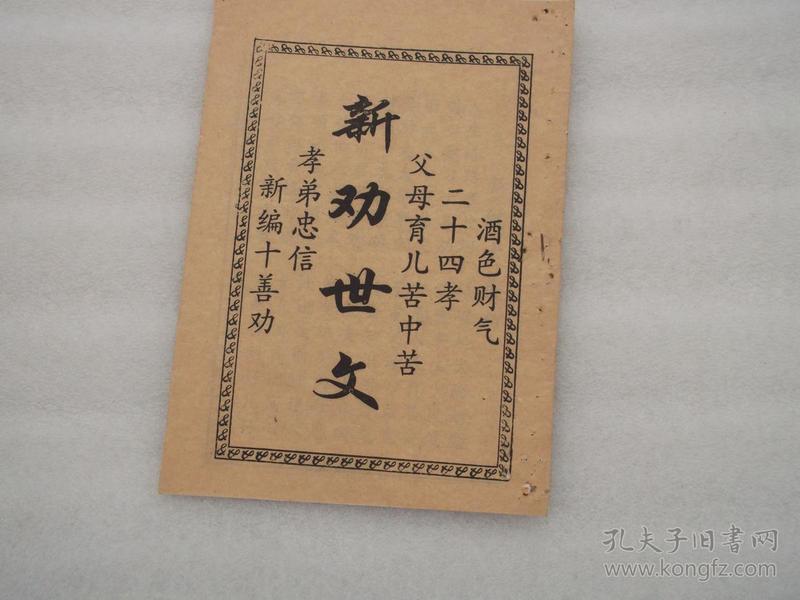 酒色财气
二十四孝
父母育儿苦中苦
新劝世文
孝弟忠信
新编十善劝
孔夫子旧书网
www.kongfz.com